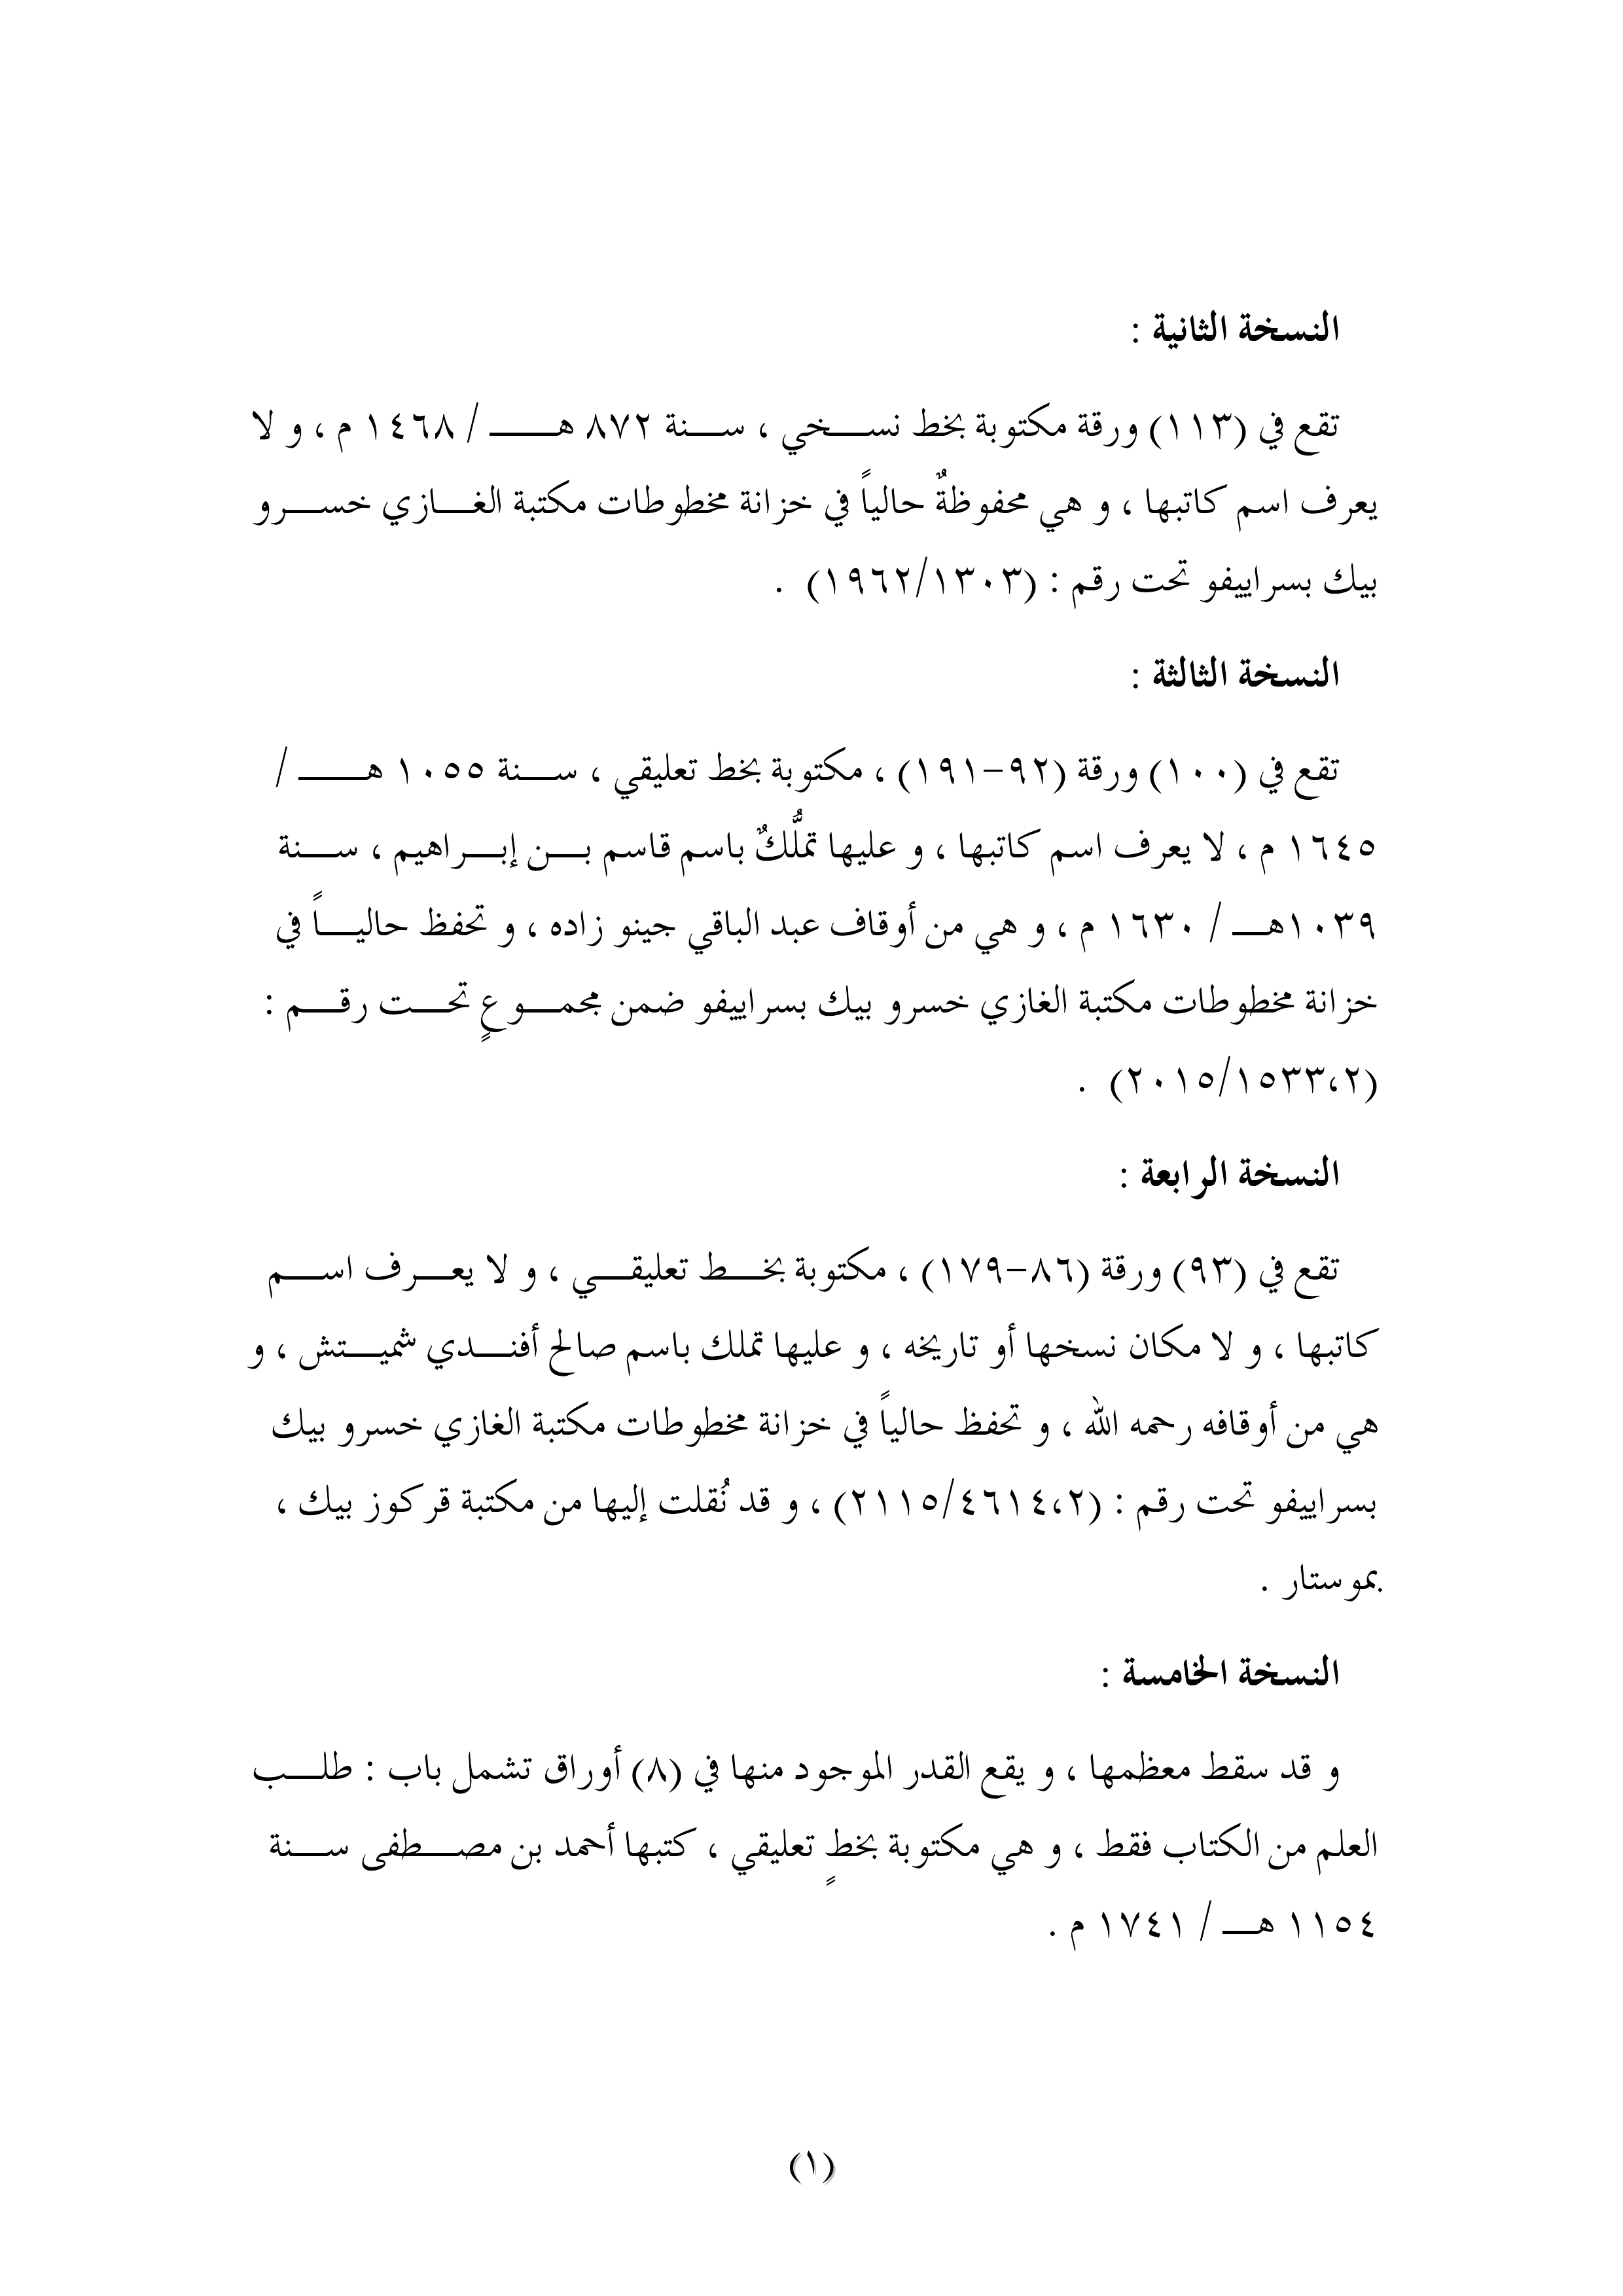 النسخة الثانية :
تقع في (١١٣) ورقة مكتوبة بخط نسخي ، سنة ٨٧٢ هـ / ١٤٦٨ م ، و لا
يعرف اسم كاتبها ، و هي محفوظةٌ حالياً في خزانة مخطوطات مكتبة الغازي خسرو
بيك بسراييفو تحت رقم : (١٩٦٢/١٣٠٣) .
النسخة الثالثة :
تقع في (١٠٠) ورقة (٩٢-١٩١) ، مكتوبة بخط تعليقي ، سنة ١٠٥٥ هـ /
١٦٤٥ م ، لا يعرف اسم كاتبها ، و عليها تملُّكٌ باسم قاسم بن إبراهيم ، سنة
١٠٣٩هـ / ١٦٣٠ م ، و هي من أوقاف عبد الباقي جينو زاده ، و تحفظ حالياً في
خزانة مخطوطات مكتبة الغازي خسرو بيك بسراييفو ضمن مجموعٍ تحت رقم :
(٢٠١٥/١٥٣٣،٢) .
النسخة الرابعة :
تقع في (٩٣) ورقة (٨٦-١٧٩) ، مكتوبة بخط تعليقي ، و لا يعرف اسم
كاتبها ، و لا مكان نسخها أو تاريخه ، و عليها تملك باسم صالح أفندي شميتش ، و
هي من أوقافه رحمه الله ، و تحفظ حالياً في خزانة مخطوطات مكتبة الغازي خسرو بيك
بسراييفو تحت رقم : (٢١١٥/٤٦١٤،٢) ، و قد نُقلت إليها من مكتبة قركوز بيك ،
بموستار .
النسخة الخامسة :
و قد سقط معظمها ، و يقع القدر الموجود منها في (٨) أوراق تشمل باب : طلب
العلم من الكتاب فقط ، و هي مكتوبة بخطٍ تعليقي ، كتبها أحمد بن مصطفى سنة
١١٥٤ هـ / ١٧٤١ م .
(١)